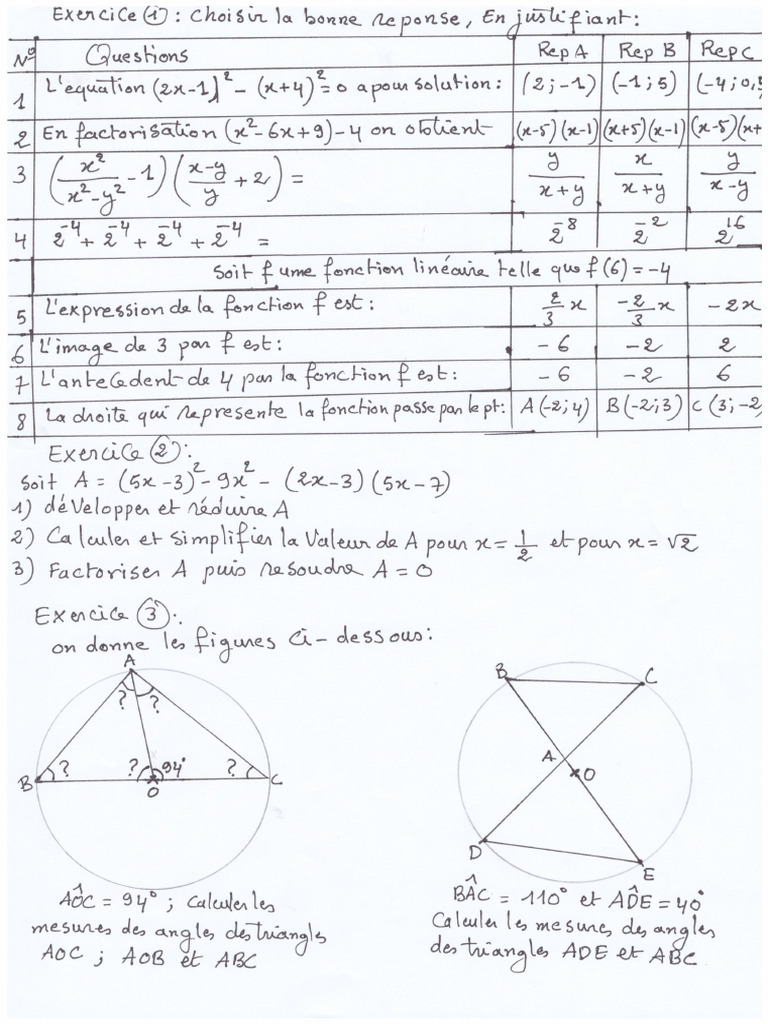 Exercice ① : Choisir la bonne reponse, En justifiant :
N° Questions Rep A Rep B Rep C
1 L'equation (2x-1)² - (x+4)² = 0 a pour solution : (2 ; -1) (-1 ; 5) (-4 ; 0,5
2 En factorisation (x² - 6x + 9) - 4 on obtient (x-5)(x-1) (x+5)(x-1) (x-5)(x+
3 (x²/(x²-y²) - 1) ((x-y)/y + 2) = y/(x+y) x/(x+y) y/(x-y)
4 2⁻⁴ + 2⁻⁴ + 2⁻⁴ + 2⁻⁴ = 2⁻⁸ 2⁻² 2¹⁶
Soit f une fonction linéaire telle que f(6) = -4
5 L'expression de la fonction f est : 2/3 x -2/3 x -2x
6 L'image de 3 par f est : -6 -2 2
7 L'antecedent de 4 par la fonction f est : -6 -2 6
8 La droite qui represente la fonction passe par le pt : A(-2 ; 4) B(-2 ; 3) C(3 ; -2
Exercice ② :
Soit A = (5x - 3)² - 9x² - (2x - 3)(5x - 7)
1) développer et réduire A
2) Calculer et simplifier la Valeur de A pour x = 1/2 et pour x = √2
3) Factoriser A puis resoudre A = 0
Exercice ③ :
on donne les figures Ci-dessous :
A
? ?
B ? ? 94° ? C
O
AÔC = 94° ; Calculer les
mesures des angles des triangles
AOC ; AOB et ABC
B C
A
O
D
E
BÂC = 110° et AD̂E = 40°
Calculer les mesures des angles
des triangles ADE et ABC